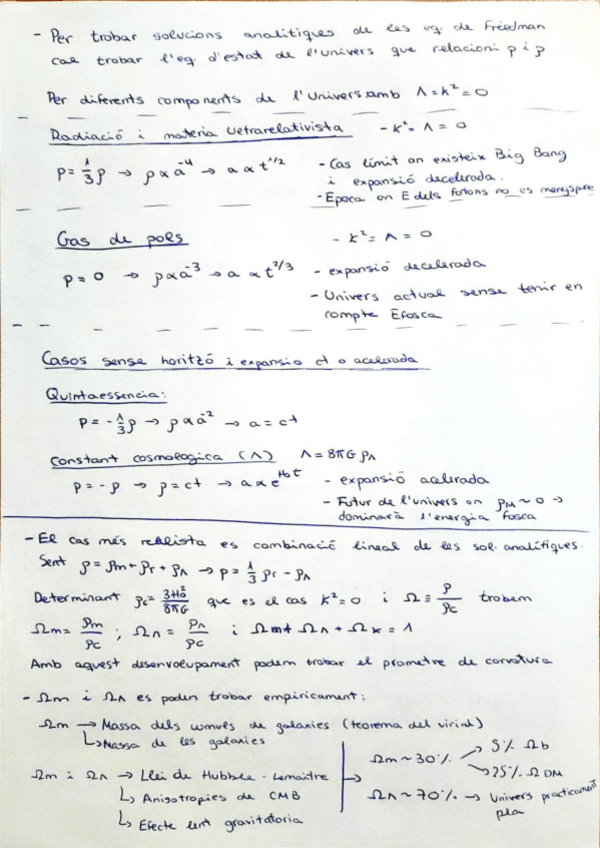 - Per trobar solucions analítiques de les eq. de Friedman
cal trobar l'eq. d'estat de l'univers que relacioni p i ρ
Per diferents components de l'Univers amb Λ = k² = 0
Radiació i materia ultrarelativista - k² = Λ = 0
p = 1/3 ρ → ρ ∝ a⁻⁴ → a ∝ t^1/2
- Cas límit on existeix Big Bang
i expansió decelerada.
- Epoca on E dels fotons no es menyspre
Gas de pols - k² = Λ = 0
p = 0 → ρ ∝ a⁻³ → a ∝ t^2/3 - expansió decelerada
- Univers actual sense tenir en
compte Efosca
Casos sense horitzó i expansio ct o acelerada
Quintaessencia:
p = -1/3 ρ → ρ ∝ a⁻² → a = ct
Constant cosmologica (Λ) Λ = 8πG ρΛ
p = -ρ → ρ = ct → a ∝ e^H₀t - expansió acelerada
- Futur de l'univers on ρM ~ 0 →
dominarà l'energia fosca
- El cas més realista es combinació lineal de les sol. analítiques.
Sent ρ = ρm + ρr + ρΛ → p = 1/3 ρr - ρΛ
Determinant ρc = 3H₀²/8πG que es el cas k² = 0 i Ω ≡ ρ/ρc trobem
Ωm = ρm/ρc ; ΩΛ = ρΛ/ρc i Ωm + ΩΛ + Ωk = 1
Amb aquest desenvolupament podem trobar el prometre de corvatura
- Ωm i ΩΛ es poden trobar empiricament:
Ωm → Massa dels cumuls de galaxies (teorema del virial)
↳ Massa de les galaxies
Ωm i ΩΛ → Llei de Hubble - Lemaitre
↳ Anisotropies de CMB
↳ Efecte lent gravitatoria
→ Ωm ~ 30% → 5% Ωb
→ 25% ΩDM
ΩΛ ~ 70% → Univers practicament
pla